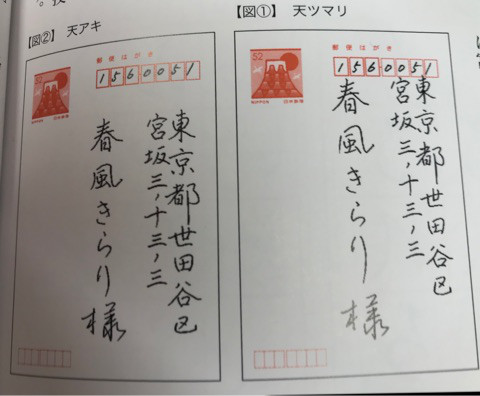 【図①】 天ツマリ
郵便はがき
52
日本郵便
1560051
東京都世田谷区
宮坂三ノ十三ノ三
春風きらり様
【図②】 天アキ
郵便はがき
日本郵便
1560051
東京都世田谷区
宮坂三ノ十三ノ三
春風きらり様